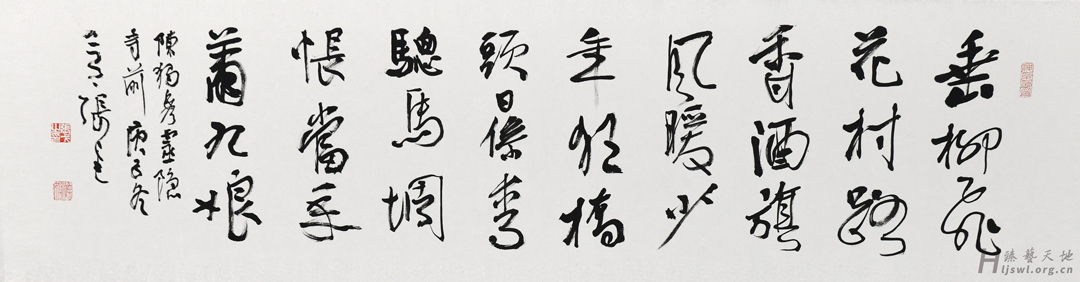 垂柳飛
花村路
香酒旗
風暖少
年狂橋
頭日係青
驄馬惆
悵當年
蕭九娘
陳獨秀靈隱
寺前 庚子冬
張
臻藝天地
Hljswl.org.cn